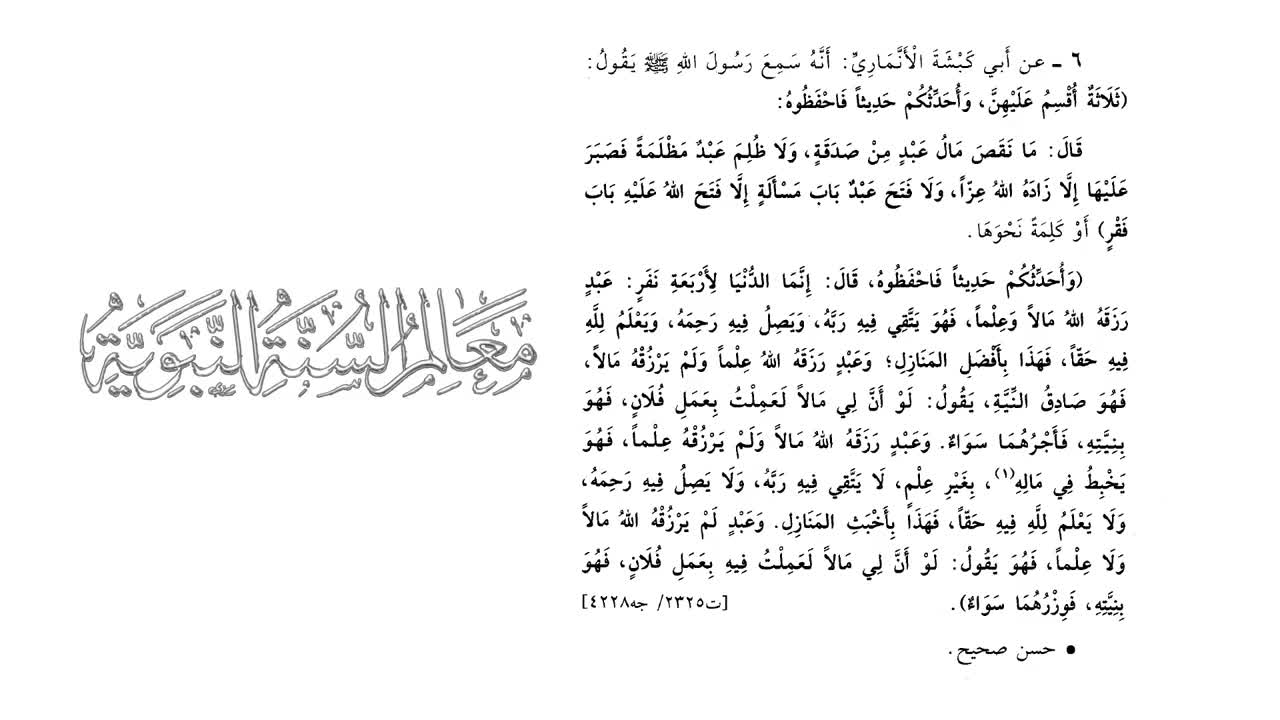 ٦ ـ عن أَبي كَبْشَةَ الْأَنَّمَارِيِّ: أَنَّهُ سَمِعَ رَسُولَ اللهِ ﷺ يَقُولُ:
(ثَلَاثَةٌ أُقْسِمُ عَلَيْهِنَّ، وَأُحَدِّثُكُمْ حَدِيثاً فَاحْفَظُوهُ:
قَالَ: مَا نَقَصَ مَالُ عَبْدٍ مِنْ صَدَقَةٍ، وَلَا ظُلِمَ عَبْدٌ مَظْلَمَةً فَصَبَرَ
عَلَيْهَا إِلَّا زَادَهُ اللهُ عِزّاً، وَلَا فَتَحَ عَبْدٌ بَابَ مَسْأَلَةٍ إِلَّا فَتَحَ اللهُ عَلَيْهِ بَابَ
فَقْرٍ) أَوْ كَلِمَةً نَحْوَهَا.
(وَأُحَدِّثُكُمْ حَدِيثاً فَاحْفَظُوهُ، قَالَ: إِنَّمَا الدُّنْيَا لِأَرْبَعَةِ نَفَرٍ: عَبْدٍ
رَزَقَهُ اللهُ مَالاً وَعِلْماً، فَهُوَ يَتَّقِي فِيهِ رَبَّهُ، وَيَصِلُ فِيهِ رَحِمَهُ، وَيَعْلَمُ لِلَّهِ
فِيهِ حَقّاً، فَهَذَا بِأَفْضَلِ المَنَازِلِ؛ وَعَبْدٍ رَزَقَهُ اللهُ عِلْماً وَلَمْ يَرْزُقْهُ مَالاً،
فَهُوَ صَادِقُ النِّيَّةِ، يَقُولُ: لَوْ أَنَّ لِي مَالاً لَعَمِلْتُ بِعَمَلِ فُلَانٍ، فَهُوَ
بِنِيَّتِهِ، فَأَجْرُهُمَا سَوَاءٌ. وَعَبْدٍ رَزَقَهُ اللهُ مَالاً وَلَمْ يَرْزُقْهُ عِلْماً، فَهُوَ
يَخْبِطُ فِي مَالِهِ(١)، بِغَيْرِ عِلْمٍ، لَا يَتَّقِي فِيهِ رَبَّهُ، وَلَا يَصِلُ فِيهِ رَحِمَهُ،
وَلَا يَعْلَمُ لِلَّهِ فِيهِ حَقّاً، فَهَذَا بِأَخْبَثِ المَنَازِلِ. وَعَبْدٍ لَمْ يَرْزُقْهُ اللهُ مَالاً
وَلَا عِلْماً، فَهُوَ يَقُولُ: لَوْ أَنَّ لِي مَالاً لَعَمِلْتُ فِيهِ بِعَمَلِ فُلَانٍ، فَهُوَ
بِنِيَّتِهِ، فَوِزْرُهُمَا سَوَاءٌ). [ت٢٣٢٥/ جه٤٢٢٨]
• حسن صحيح.
مَعَالِمُ السُّنَّةِ النَّبَوِيَّةِ